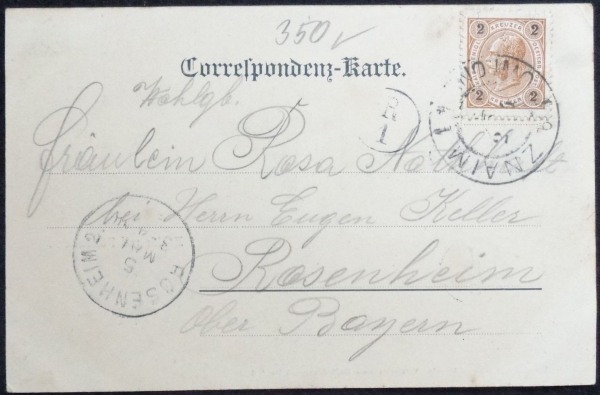 350
2 KREUZER 2
2 2
Correspondenz-Karte.
Wohlgb.
Fräulein Rosa
bei Herrn Eugen Keller
Rosenheim
Ober Bayern
ZNAIM
ROSENHEIM 2
MAI
1